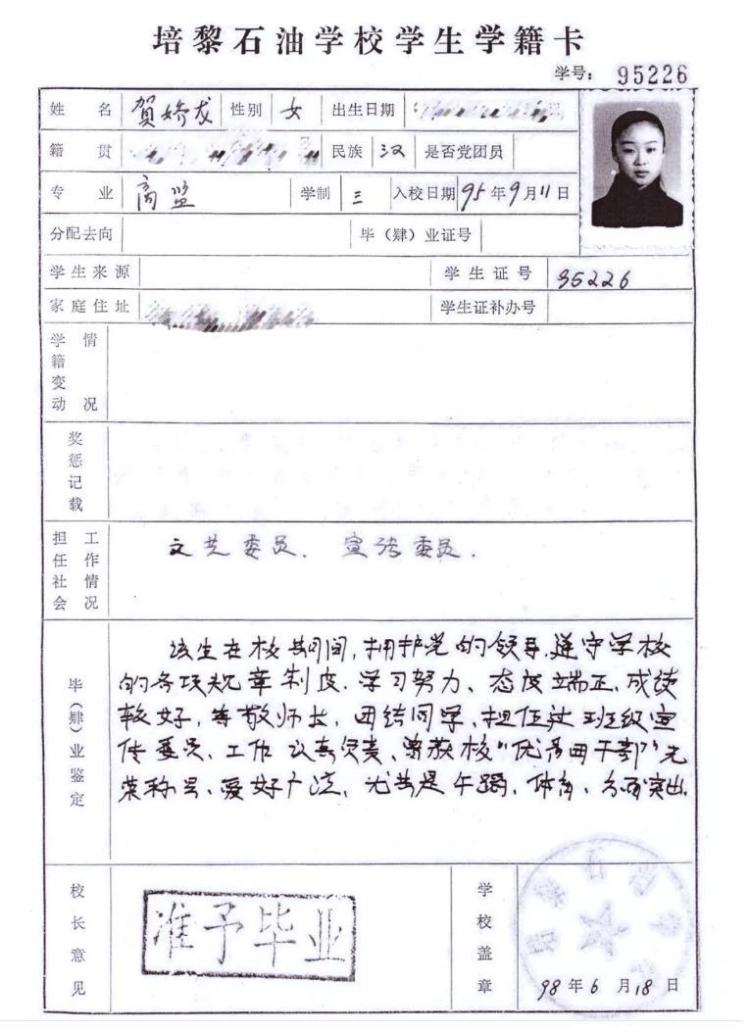 培黎石油学校学生学籍卡
学号: 95226
姓名 賀娇龙 性别 女 出生日期
籍贯 民族 汉 是否党团员
专业 商监 学制 三 入校日期 95年9月11日
分配去向 毕（肄）业证号
学生来源 学生证号 95226
家庭住址 学生证补办号
学籍变动情况
奖惩记载
担任社会工作情况 文艺委员、宣传委员.
毕（肄）业鉴定
该生在校期间,拥护党的领导,遵守学校
的各项规章制度.学习努力、态度端正,成绩
较好,尊敬师长,团结同学,担任过班级宣
传委员、工作认真负责、曾获校"优秀团干部"光
荣称号、爱好广泛、尤其是午蹈,体育、方面突出.
校长意见 准予毕业
学校盖章 98年6月18日